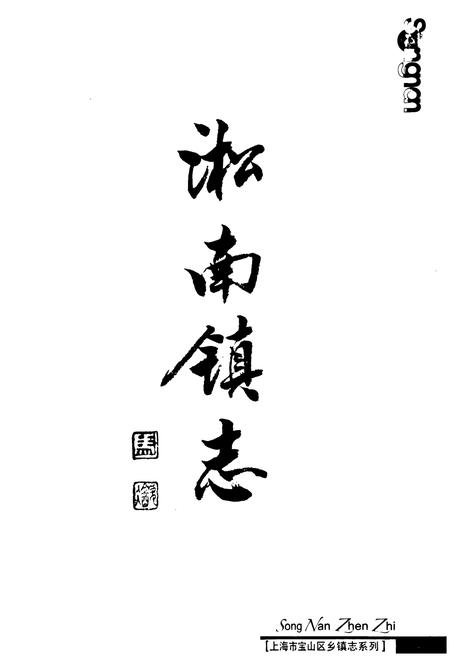 Songnan
淞南镇志
Song Nan Zhen Zhi
[上海市宝山区乡镇志系列]